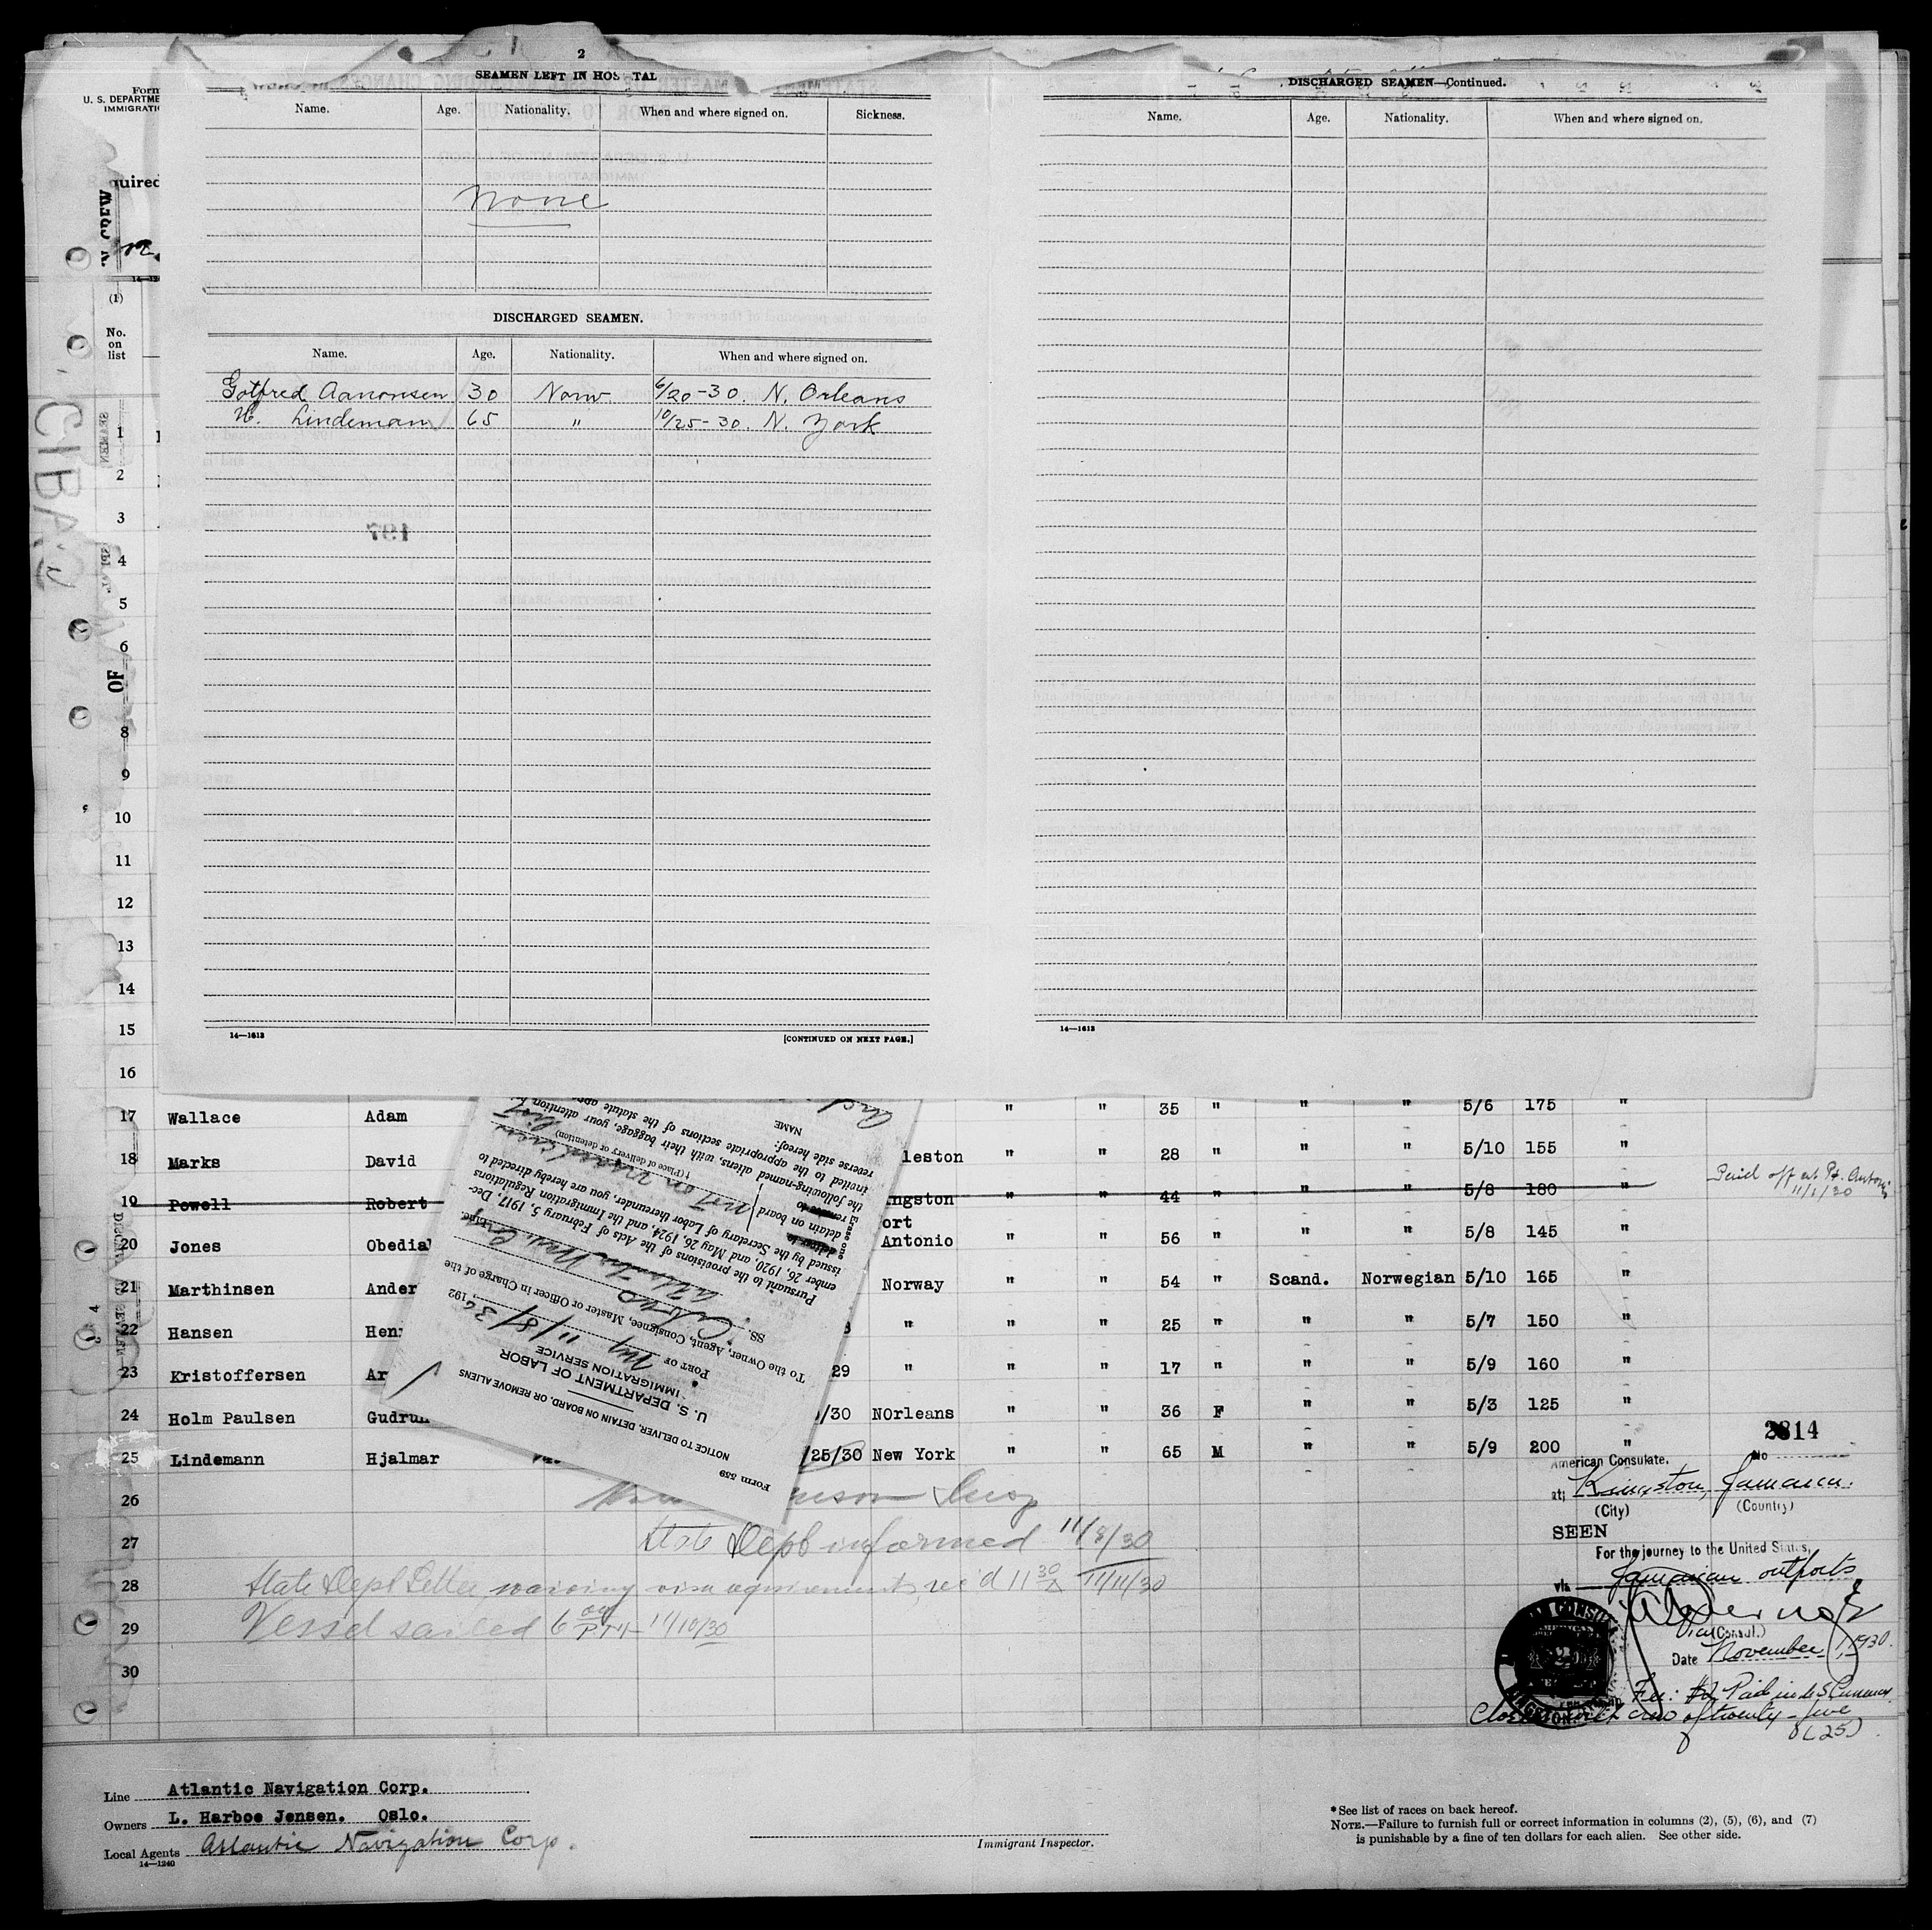 2
SEAMEN LEFT IN HOS TAL
Name. Age. Nationality. When and where signed on. Sickness.
None
DISCHARGED SEAMEN.
Name. Age. Nationality. When and where signed on.
Gotfred Aanonsen 30 Norw. 6/20-30. N. Orleans
H. Lindemann 65 " 10/25-30. N. York
197
14—1613 [CONTINUED ON NEXT PAGE.]
DISCHARGED SEAMEN—Continued.
Name. Age. Nationality. When and where signed on.
14—1613
Form
U. S. DEPARTME
IMMIGRATI
quired
CREW
(1)
No.
on
list
CIBAO
OF
1
2
3
4
5
6
8
9
10
11
12
13
14
15
16
17 Wallace Adam " " 35 " " " 5/6 175 "
18 Marks David leston " " 28 " " " 5/10 155 "
19 Powell Robert ngston " " 44 " " " 5/8 180 " Paid off at Pt. Antonio
11/1/30
20 Jones Obedia ort Antonio " " 56 " " " 5/8 145 "
21 Marthinsen Ander Norway " " 54 " Scand. Norwegian 5/10 165 "
22 Hansen Hen " " " 25 " " " 5/7 150 "
23 Kristoffersen Ar 29 " " " 17 " " " 5/9 160 "
24 Holm Paulsen Gudrun /30 NOrleans " " 36 F " " 5/3 125 "
25 Lindemann Hjalmar /25/30 New York " " 65 M " " 5/9 200 "
26
27 State Dept informed 11/8/30
28 State Dept Letter waiving visa requirements, rec'd 11 30 A 11/11/30
29 Vessel sailed 6 PM 11/10/30
30
Form 559
NOTICE TO DELIVER, DETAIN ON BOARD, OR REMOVE ALIENS
U. S. DEPARTMENT OF LABOR
IMMIGRATION SERVICE
PORT OF NY 11/8/30, 192
To the Owner, Agent, Consignee, Master or Officer in Charge of the
SS. Cibao Atlantic Nav. Corp Line.
Pursuant to the provisions of the Acts of February 5, 1917, Dec-
ember 26, 1920, and May 26, 1924, and the Immigration Regulations
issued by the Secretary of Labor thereunder, you are hereby directed to
Erase one
detain on board
remove to
(Place of delivery or detention)
the following-named aliens, with their baggage, your attention
invited to the appropriate sections of the statute
reverse side hereof:
NAME
2814
American Consulate. No
at Kingston, Jamaica.
(City) (Country)
SEEN
For the journey to the United States,
via Jamaican outports
Vice (Consul.)
Date November 1, 1930.
Fee: $2 Paid in U S Currency
Closed with crew of twenty-five
(25)
Line Atlantic Navigation Corp.
Owners L. Harboe Jensen. Oslo.
Local Agents Atlantic Navigation Corp.
14—1240
Immigrant Inspector.
*See list of races on back hereof.
NOTE.—Failure to furnish full or correct information in columns (2), (5), (6), and (7)
is punishable by a fine of ten dollars for each alien. See other side.